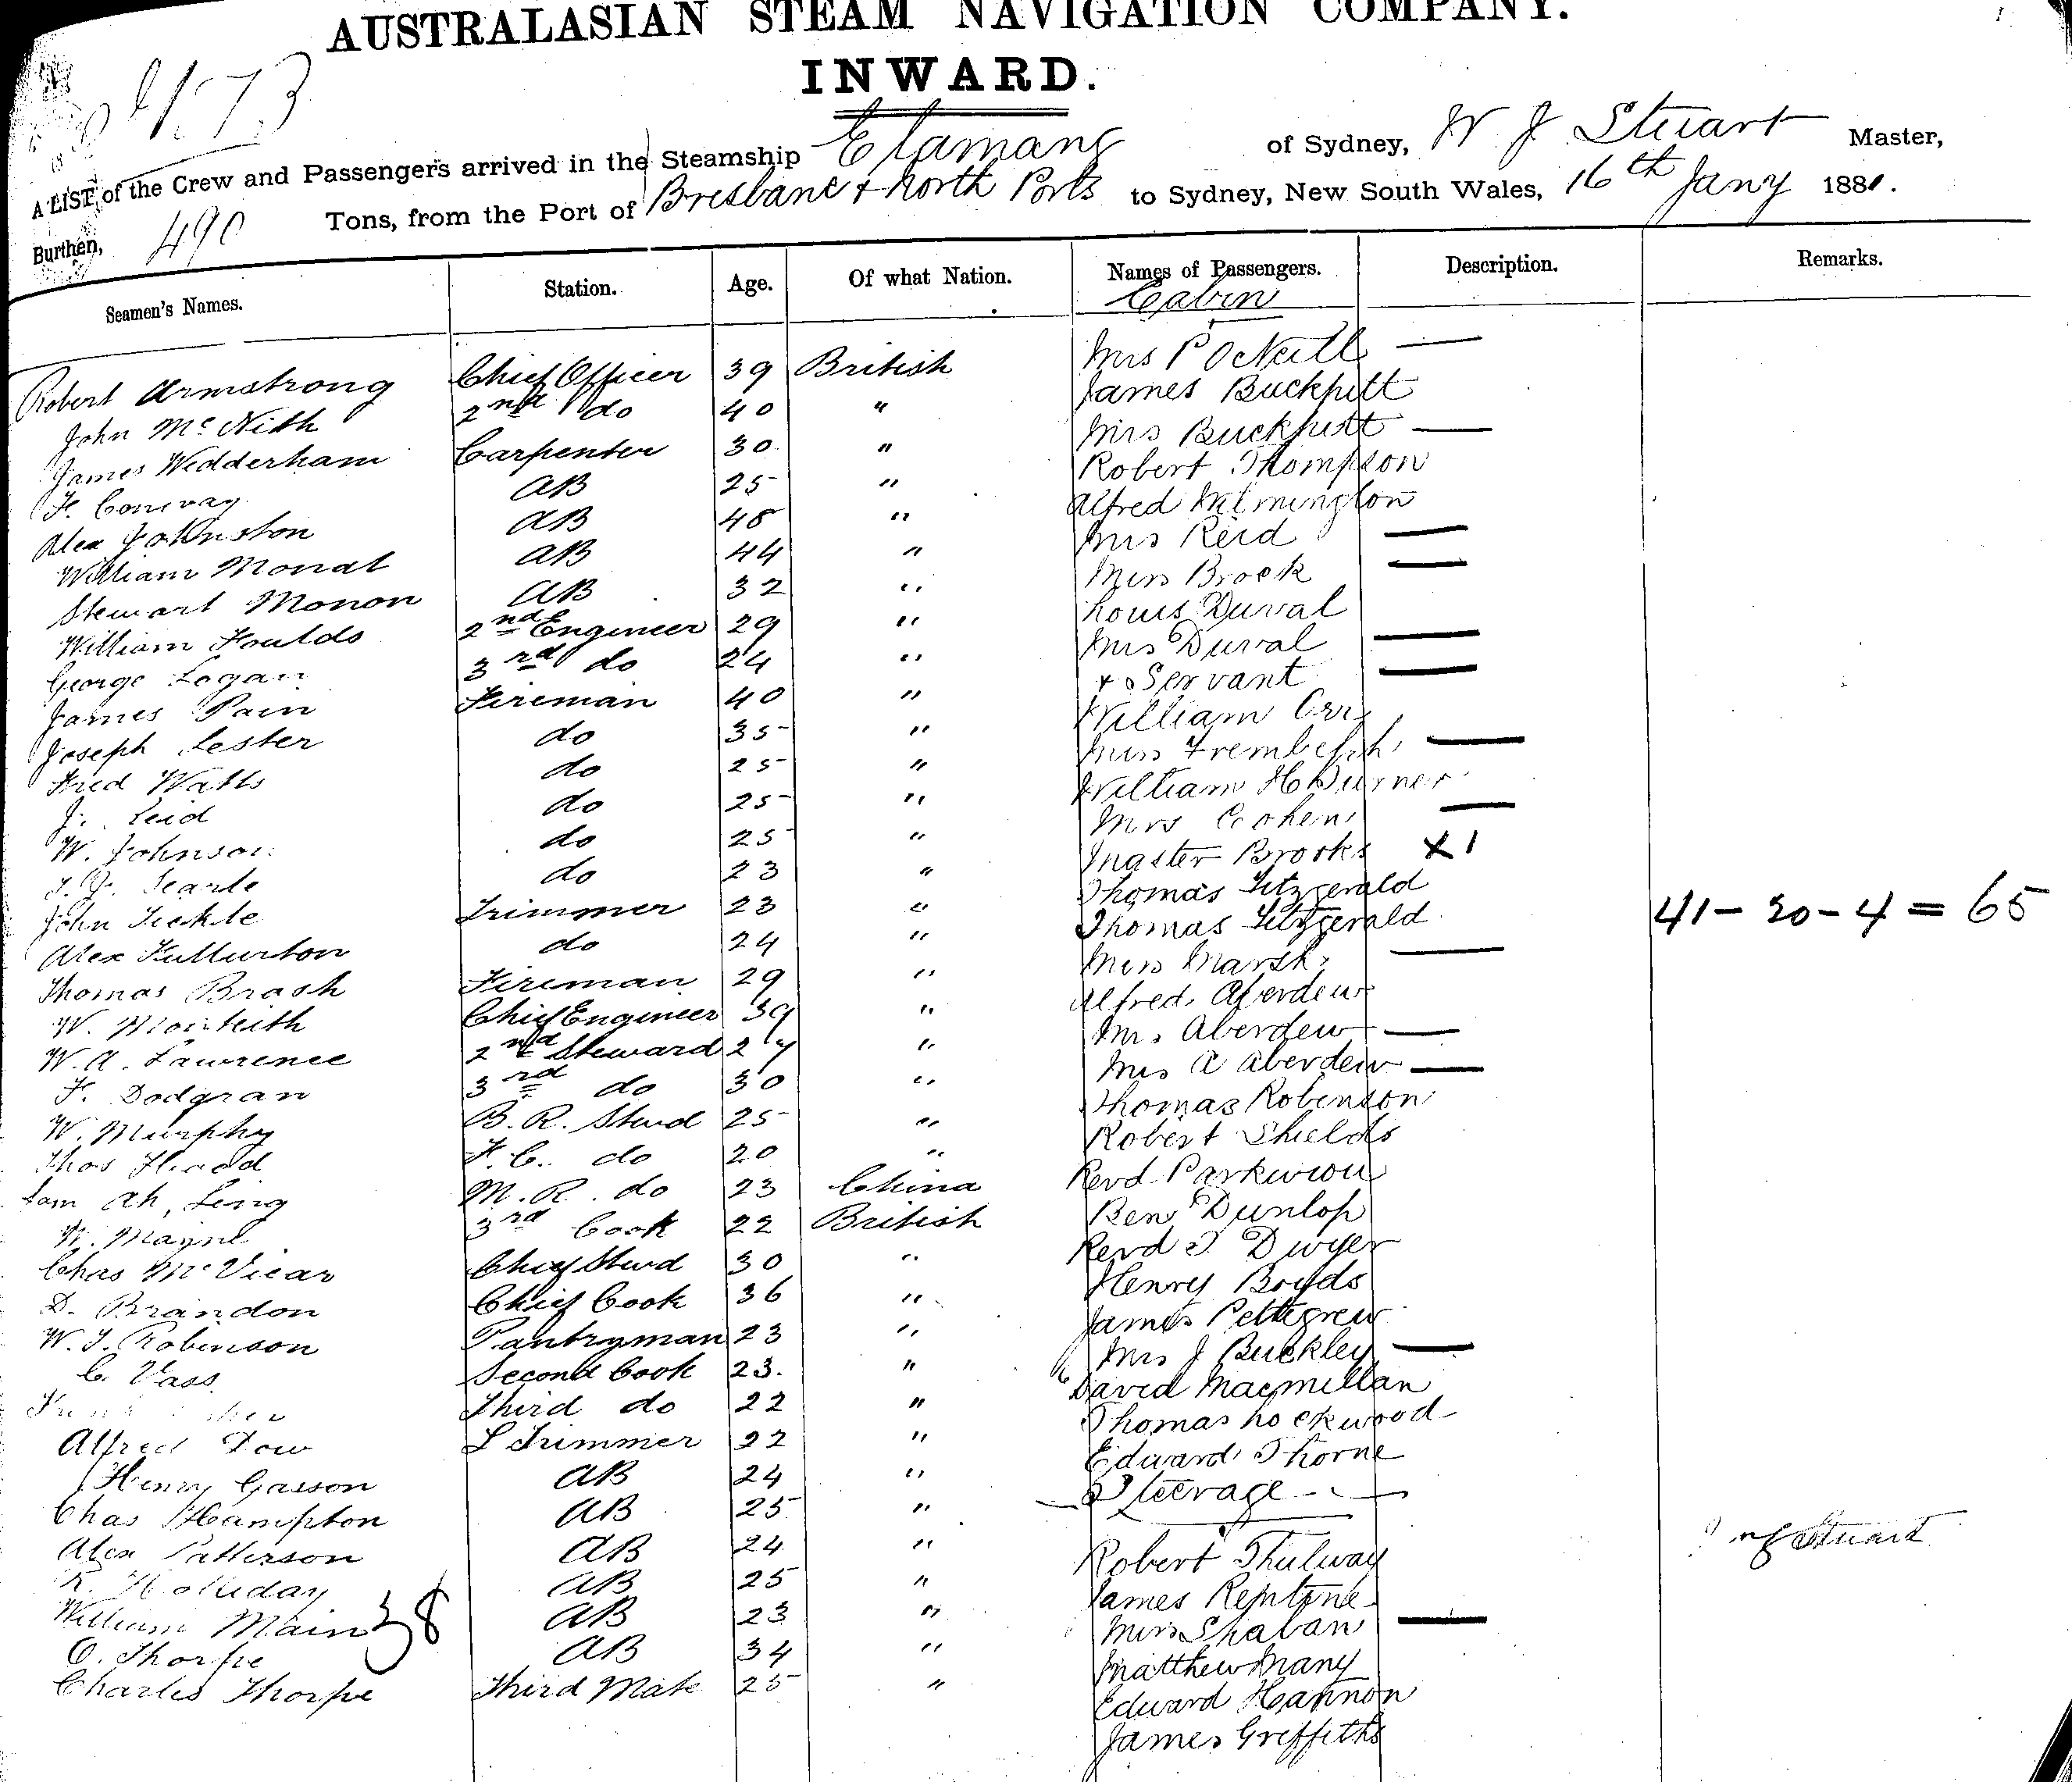 AUSTRALASIAN STEAM NAVIGATION COMPANY.
INWARD.
A LIST of the Crew and Passengers arrived in the Steamship Elamang of Sydney, W J Stuart Master,
Burthen, 490 Tons, from the Port of Brisbane + North Ports to Sydney, New South Wales, 16th Jany 1881.
Seamen's Names. Station. Age. Of what Nation. Names of Passengers. Description. Remarks.
Cabin
Robert Armstrong Chief Officer 39 British Mrs P ONeill —
John McNith 2nd do 40 " James Buckpitt
James Wedderham Carpenter 30 " Mrs Buckpitt —
F. Conway AB 25 " Robert Thompson
Alex Johnston AB 48 " Alfred
William Monat AB 44 " Mrs Reid —
Stewart Monon AB 32 " Miss Brook —
William Foulds 2nd Engineer 29 " Louis Duval
George Logan 3rd do 24 " Mrs Duval —
James Pain Fireman 40 " + Servant —
Joseph Lester do 35 " William Orr
Fred Watts do 25 " Miss —
J. Reid do 25 " William H
W. Johnson do 25 " Mrs Cohen —
Searle do 23 " Master Brooks X 1
John Tickle Trimmer 23 " Thomas Fitzgerald
Alex Fullurton do 24 " Thomas Fitzgerald 41 - 20 - 4 = 65
Thomas Brash Fireman 29 " Miss Marsh —
W. Monteith Chief Engineer 39 " Alfred Aberdew
W. A. Lawrence 2nd Steward 24 " Mrs Aberdew —
F. Dodgran 3rd do 30 " Miss A Aberdew —
W. Murphy B. R. Stwd 25 " Thomas Robinson
Thos Headd F. C. do 20 " Robert Shields
Sam Ah Ling M. R. do 23 China Revd
W. Mayne 3rd Cook 22 British Ben Dunlop
Chas McVicar Chief Stwd 30 " Revd T Dwyer
D. Brandon Chief Cook 36 " Henry Boyds
W. J. Robinson Pantryman 23 " James Pettegrew
C. Vass Second Cook 23. " Mrs J Buckley —
Third do 22 " David Macmillan
Alfred Dow L Trimmer 22 " Thomas Lockwood
Henry Gasson AB 24 " Edward Thorne
Chas Hampton AB 25 " Steerage
Alex Patterson AB 24 " Robert Thulway
R. Holliday AB 25 " James
William Main 38 AB 23 " Miss Shaban —
O. Thorpe AB 34 " Matthew Many
Charles Thorpe Third Mate 25 " Edward Hannon
James Griffiths
Stuart